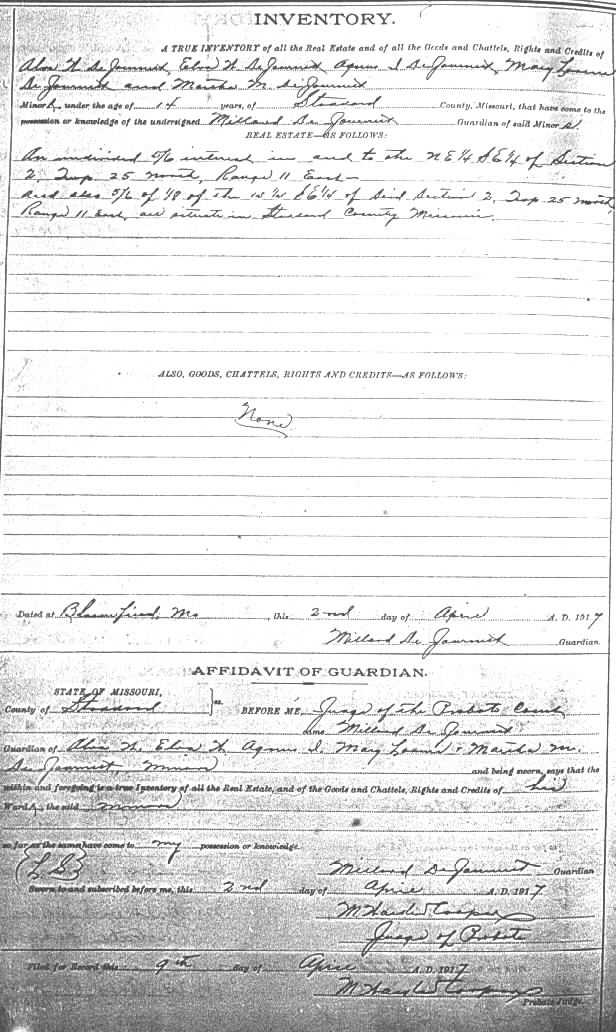 INVENTORY.
A TRUE INVENTORY of all the Real Estate and of all the Goods and Chattels, Rights and Credits of
Alva H De Journett, Elva H De Journett Agnes I De Journett, Mary
De Journett and Martha M. De Journett
Minors, under the age of 14 years, of Stoddard County, Missouri, that have come to the
possession or knowledge of the undersigned Millard De Journett Guardian of said Minor s.
REAL ESTATE—AS FOLLOWS:
An undivided 5/6 interest in and to the N E 1/4 S E 1/4 of Section
2, Twp 25 north, Range 11 East—
and also 5/6 of 1/8 of the 1/4 S E 1/4 of Said Section 2, Twp 25 north
Range 11 East, all situate in Stoddard County Missouri.
ALSO, GOODS, CHATTELS, RIGHTS AND CREDITS—AS FOLLOWS:
None
Dated at Bloomfield, Mo, this 2nd day of April A. D. 1917
Millard De Journett Guardian.
AFFIDAVIT OF GUARDIAN.
STATE OF MISSOURI,
County of Stoddard ss. BEFORE ME, Judge of the Probate Court
came Millard De Journett
Guardian of Alva H. Elva H. Agnes I. Mary & Martha M.
De Journett, Minors and being sworn, says that the
within and foregoing is a true Inventory of all the Real Estate, and of the Goods and Chattels, Rights and Credits of his
Wards, the said minors
so far as the same have come to my possession or knowledge.
(L S) Millard De Journett Guardian
Sworn to and subscribed before me, this 2nd day of April A. D. 1917
Cooper
Judge of Probate
Filed for Record this 9th day of April A. D. 1917
Cooper
Probate Judge.